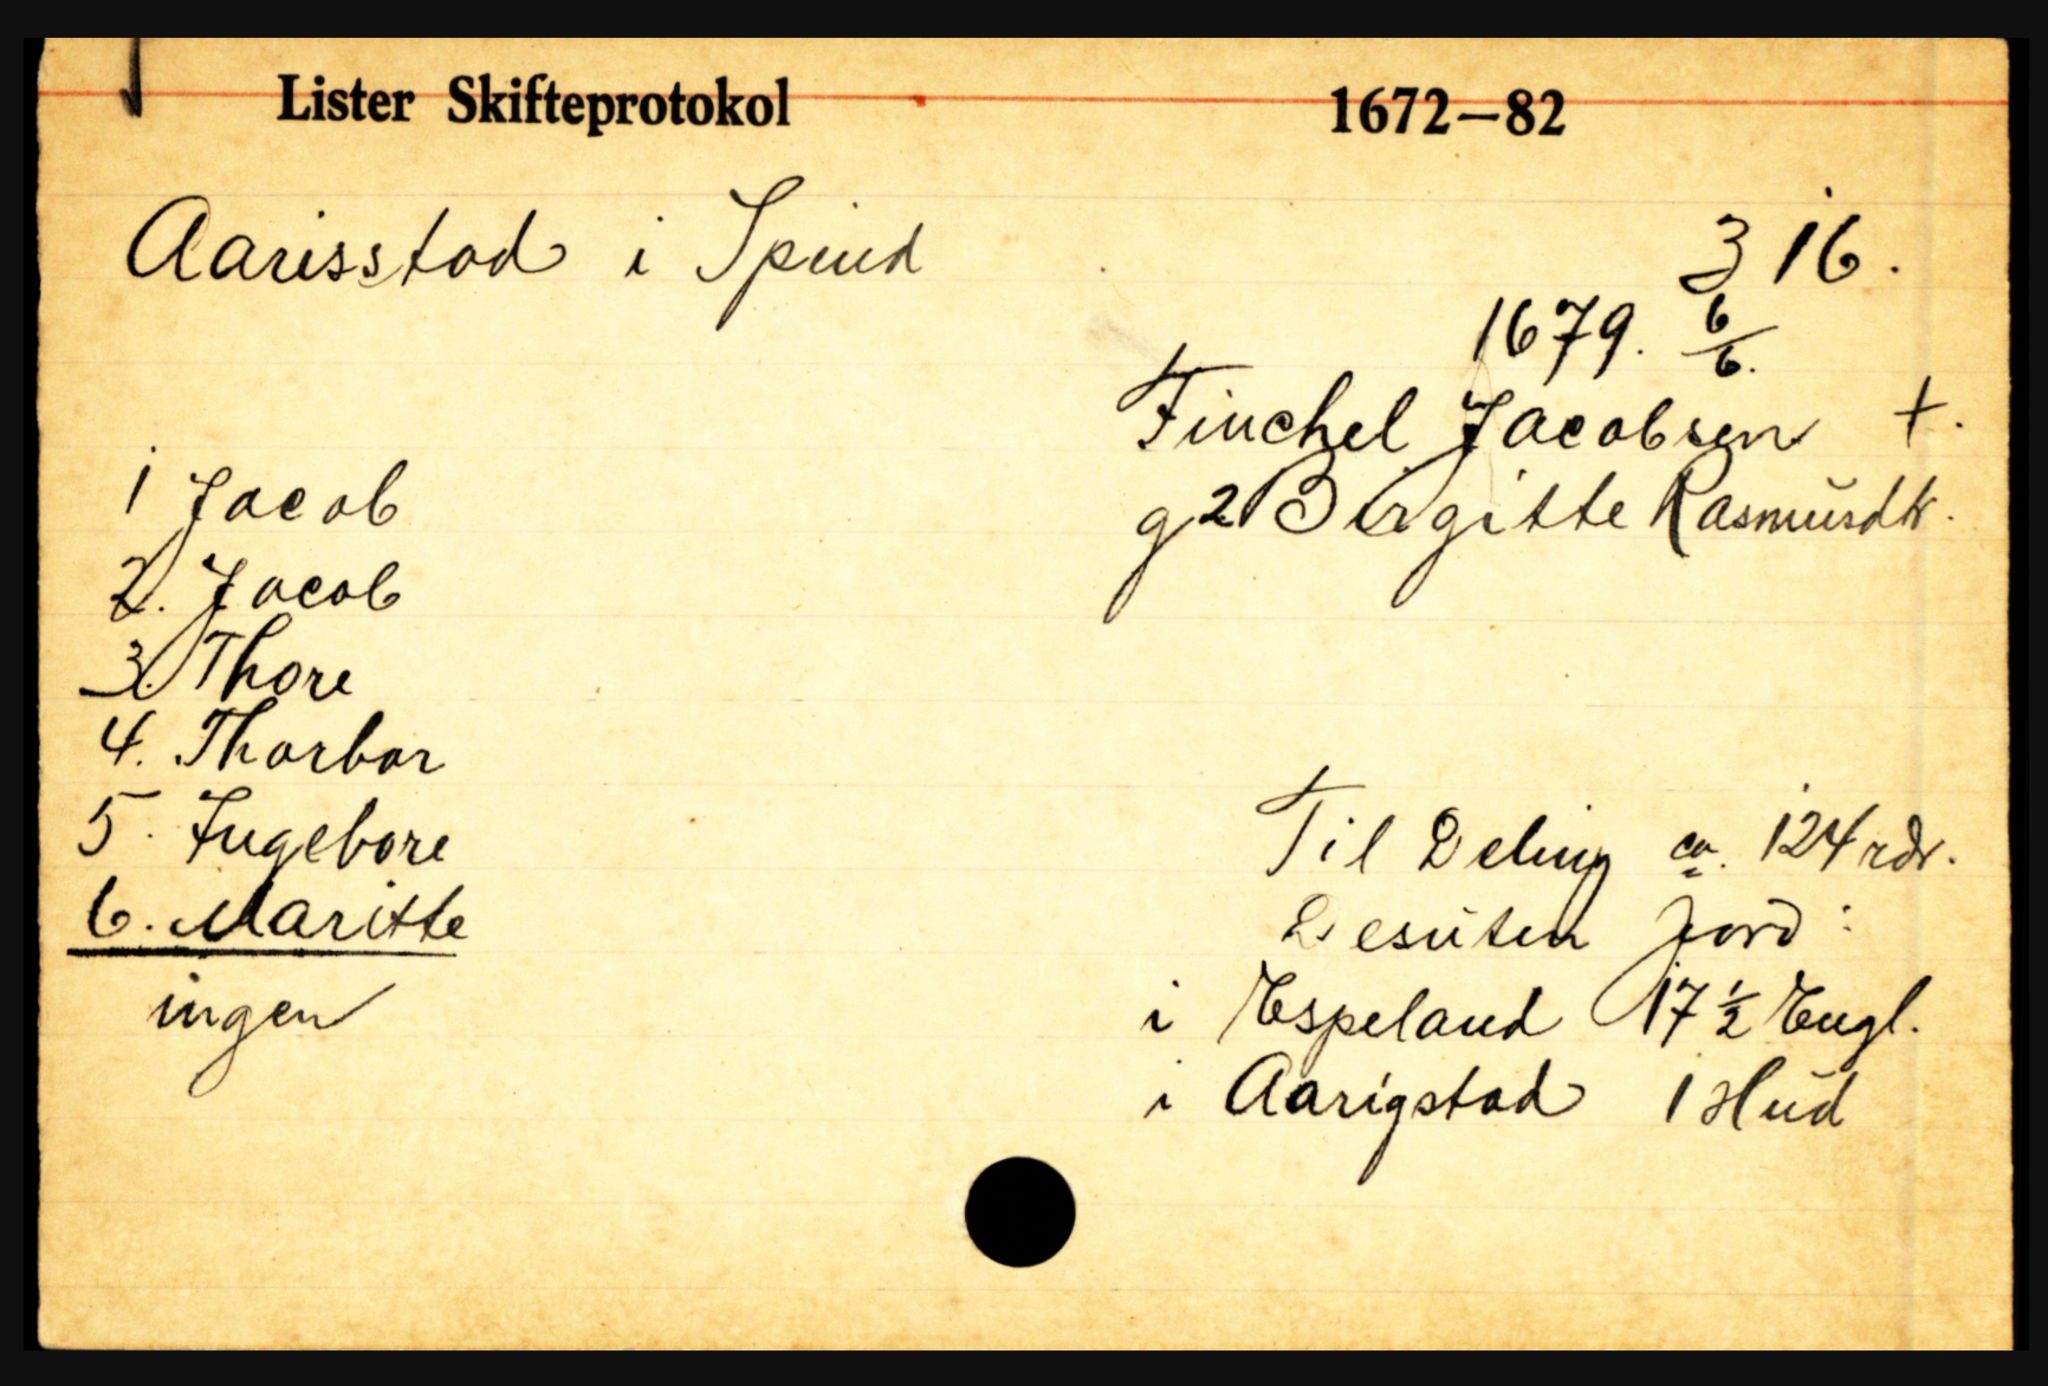 Lister Skifteprotokol 1672—82
Aarisstad i Spind
316.
1679. 6/6.
Finchel Jacobsen +.
g2 Birgitte Rasmusdtr.
1 Jacob
2. Jacob
3. Thore
4. Thorbor
5. Ingebore
6. Maritte
ingen
Til Deling ca. 124 rdr.
Desuten Jord:
i Espeland 17½ Engl.
i Aarigstad 1 Hud